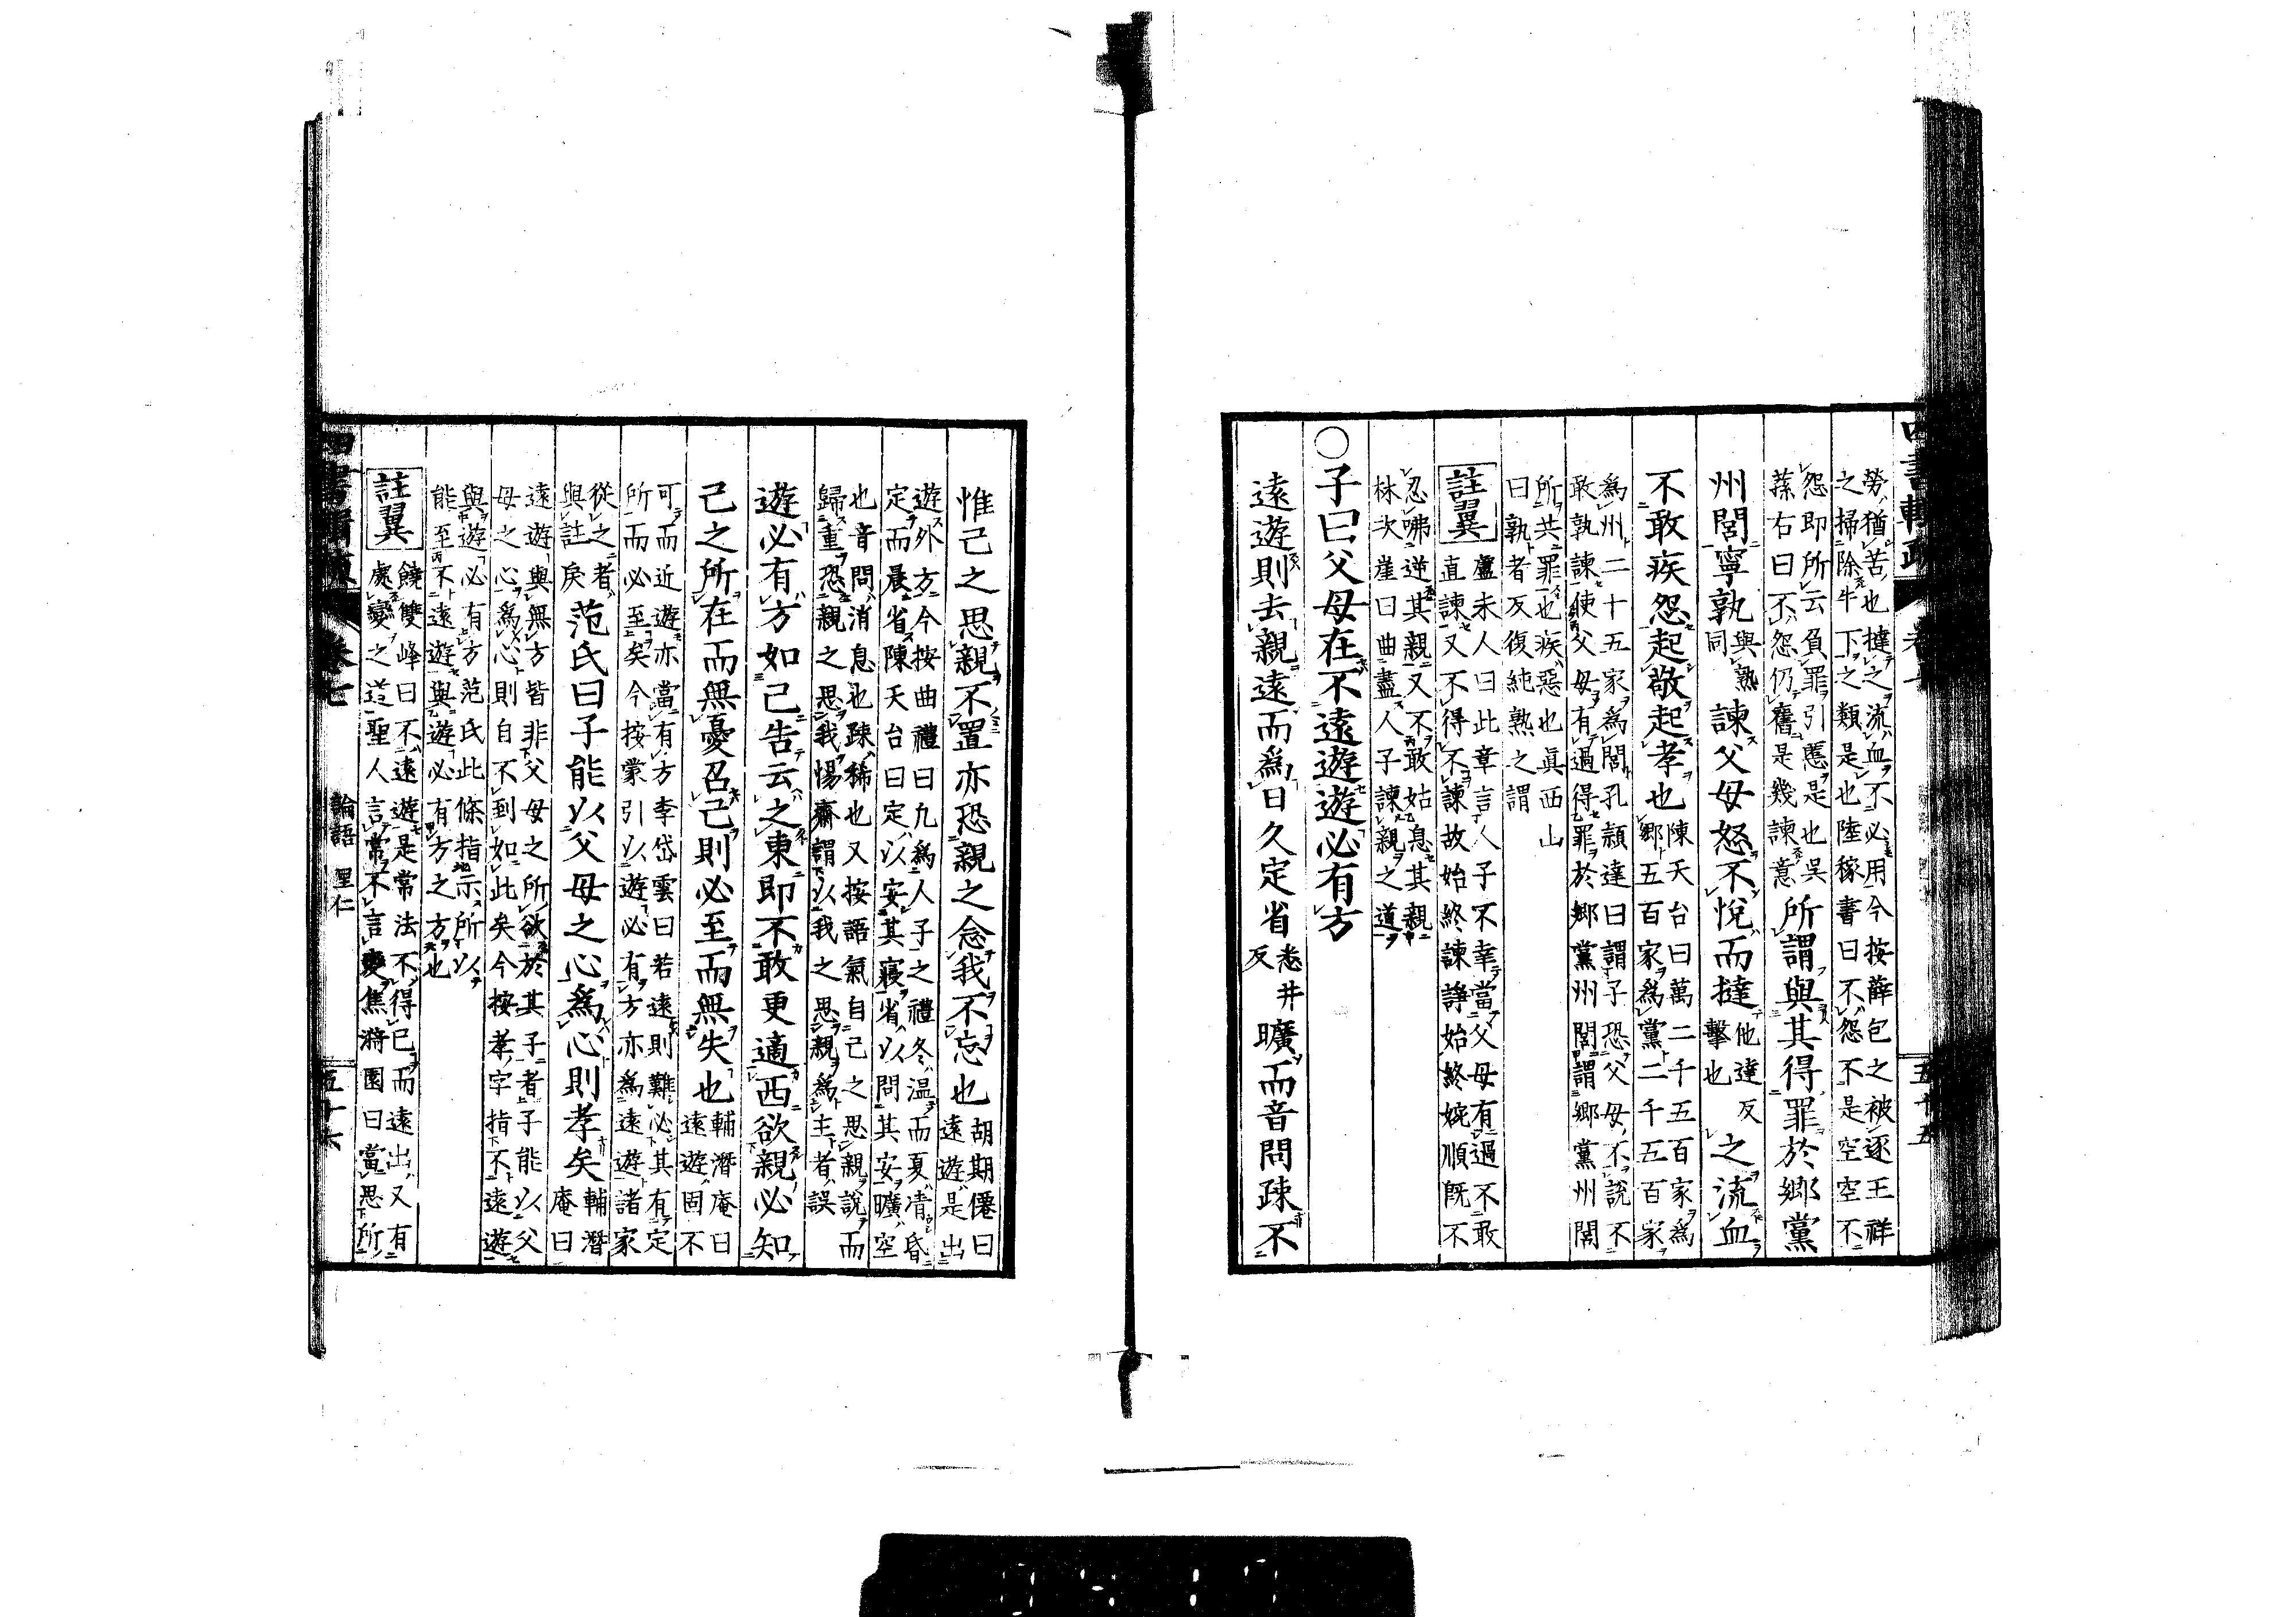 勞猶苦也撻之流血不必用今按薛包之被逐王祥
之掃除牛下之類是也陸稼書曰不怨不是空空不
怨即所云負罪引慝是也吳
蓀右曰不怨仍舊是幾諫意
所謂與其得罪於鄉黨
州閭寧孰
與熟
同
諫父母怒不悅而撻
他達反
擊也
之流血
不敢疾怨起敬起孝也
陳天台曰萬二千五百家爲
鄉五百家爲黨二千五百家
爲州二十五家爲閭孔頴達曰謂子恐父母不說不
敢孰諫使父母有過得罪於鄉黨州閭謂鄉黨州閭
所共罪也疾惡也眞西山
曰孰者反復純熟之謂
註翼
盧未人曰此章言人子不幸當父母有過不敢
直諫又不得不諫故始終諫諍始終婉順旣不
忍咈逆其親又不敢姑息其親
林次崖曰曲盡人子諫親之道
○子曰父母在不遠遊遊必有方
遠遊則去親遠而爲日久定省
悉井
反
曠而音問疎不
惟己之思親不置亦恐親之念我不忘也
胡期僊曰
遠遊是出
遊外方今按曲禮曰凡爲人子之禮冬温而夏凊昏
定而晨省陳天台曰定以安其寢省以問其安曠空
也音問消息也疎稀也又按語氣自己之思親說而
歸重恐親之思我惕齋謂以我之思親爲主者誤
遊必有方如己告云之東即不敢更適西欲親必知
己之所在而無憂召己則必至而無失也
輔潛庵曰
遠遊固不
可而近遊亦當有方李岱雲曰若遠則難必其有定
所而必至矣今按蒙引以遊必有方亦爲遠遊諸家
從之者
與註戾
范氏曰子能以父母之心爲心則孝矣
輔潛
庵曰
遠遊與無方皆非父母之所欲於其子者子能以父
母之心爲心則自不到如此矣今按孝字指不遠遊
與遊必有方范氏此條指示所以
能至不遠遊與遊必有方之方也
註翼
饒雙峰曰不遠遊是常法不得已而遠出又有
處變之道聖人言常不言變焦漪園曰當思所
四書輯疏
卷七
論語 里仁
五十六
五十五